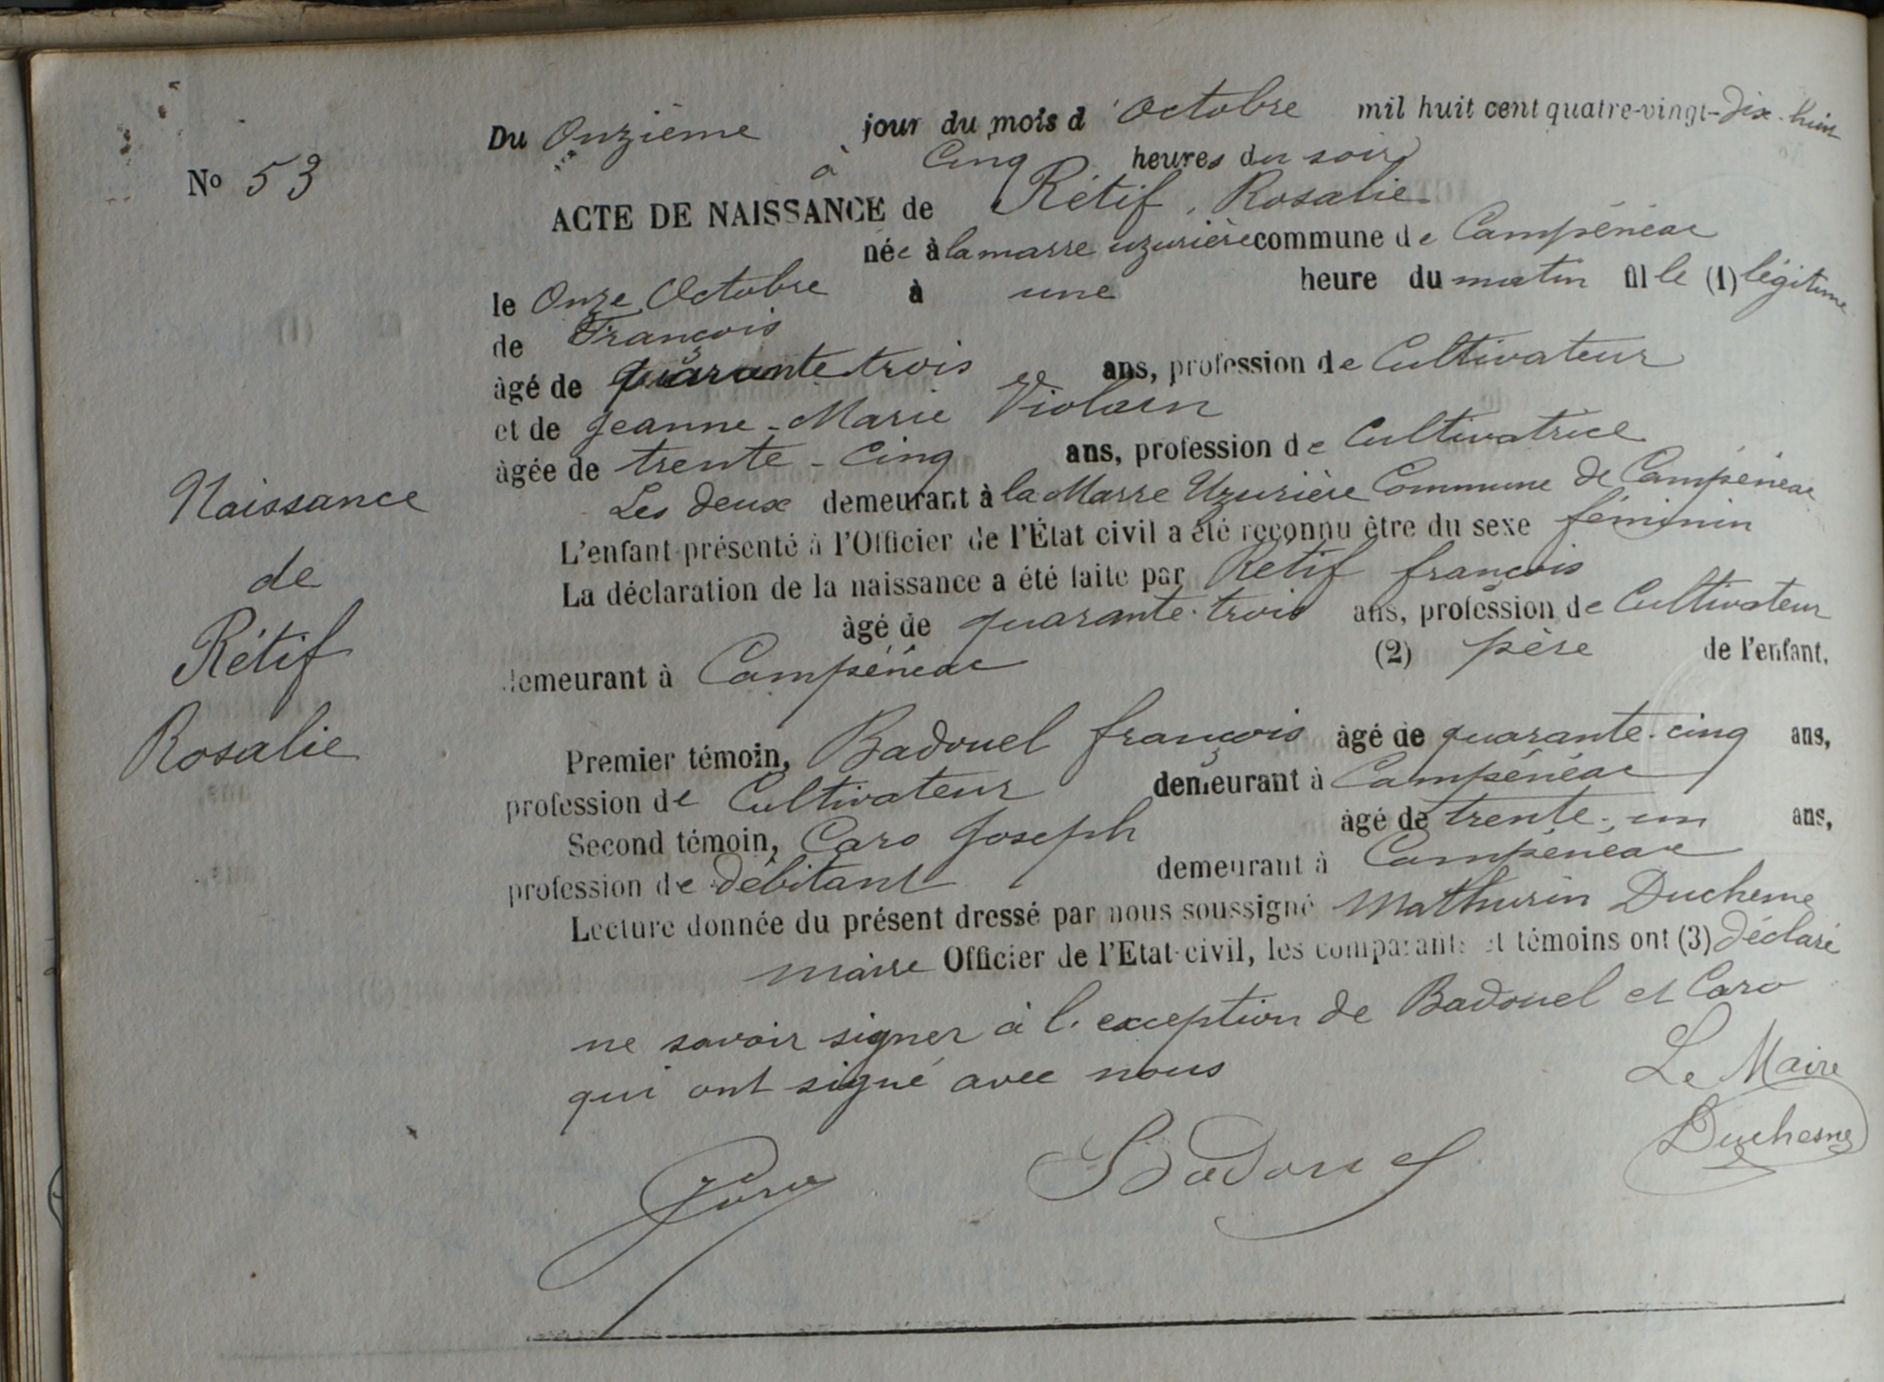 Du Onzième jour du mois d'Octobre mil huit cent quatre-vingt-dix-huit
à Cinq heures du soir
No 53
ACTE DE NAISSANCE de Rétif, Rosalie
née à la marre uzurière commune de Campénéac
le Onze Octobre à une heure du matin fille (1) légitime
de François
âgé de quarante trois ans, profession de Cultivateur
et de Jeanne-Marie Violain
âgée de trente-Cinq ans, profession de Cultivatrice
Les deux demeurant à la Marre Uzurière Commune de Campénéac
L'enfant présenté à l'Officier de l'État civil a été reconnu être du sexe féminin
La déclaration de la naissance a été faite par Rétif françois
âgé de quarante-trois ans, profession de Cultivateur
demeurant à Campénéac (2) père de l'enfant.
Naissance
de
Rétif
Rosalie
Premier témoin, Badouel françois âgé de quarante-cinq ans,
profession de Cultivateur demeurant à Campénéac
Second témoin, Caro Joseph âgé de trente-un ans,
profession de débitant demeurant à Campénéac
Lecture donnée du présent dressé par nous soussigné Mathurin Duchesne
maire Officier de l'Etat-civil, les comparants et témoins ont (3) déclaré
ne savoir signer à l'exception de Badouel et Caro
qui ont signé avec nous
Le Maire
Duchesne
Caro Badouel